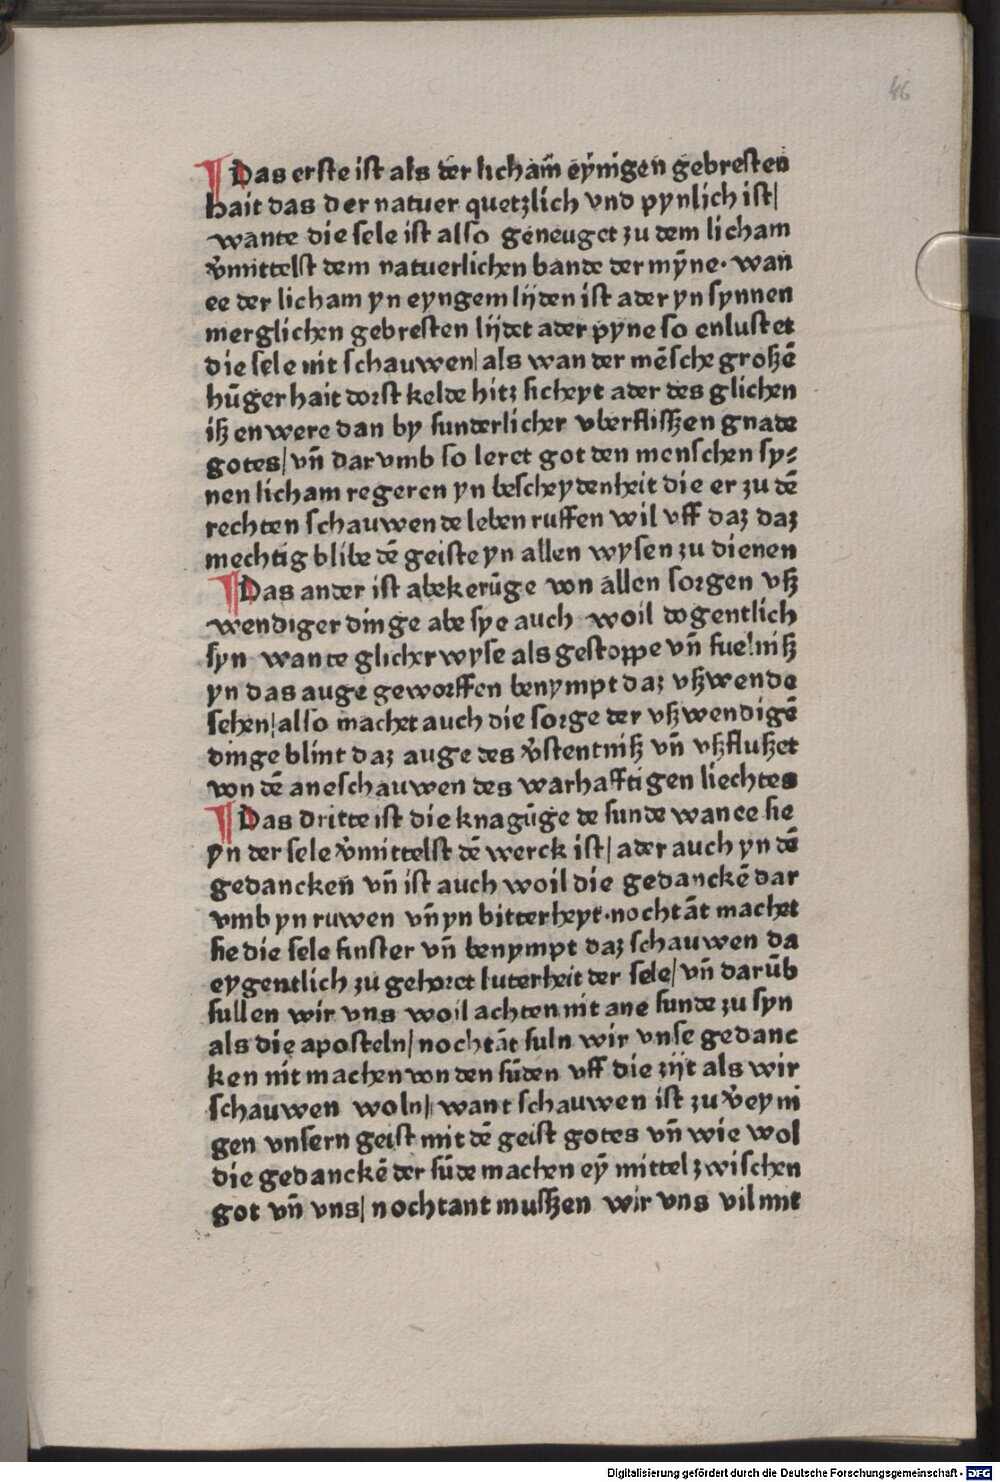 46
¶ Das erste ist als der licham̄ eȳnigen gebresten
hait das der natuer quetzlich vnd pynlich ist/
wante die sele ist also geneuget zu dem licham
v̄mittelst dem natuerlichen bande der mȳne· wan
ee der licham yn eyngem lijden ist ader yn synnen
merglichen gebresten lijdet ader pyne so enlustet
die sele nit schauwen/ als wan der mēsche großē
hūger hait dorst kelde hitz sicheyt ader des glichen
iß en were dan by sunderlicher vberflisszen gnade
gotes/ vn̄ dar vmb so leret got den menschen sy⸗
nen licham regeren yn bescheydenheit die er zu dē
rechten schauwende leben ruffen wil vff daz daz
mechtig blibe dē geiste yn allen wysen zu dienen
¶ Das ander ist abekerūge von allen sorgen vß
wendiger dinge abe sye auch woil dogentlich
syn wante glicher wyse als gestoppe vn̄ fuelniß
yn das auge geworffen benympt daz vßwende
sehen/ also machet auch die sorge der vßwendigē
dinge blint daz auge des v̄stentniß vn̄ vßflußet
von dē aneschauwen des warhafftigen liechtes
¶ Das dritte ist die knagūge de sunde wan ee sie
yn der sele v̄mittelst dē werck ist/ ader auch yn dē
gedancken vn̄ ist auch woil die gedanckē dar
vmb yn ruwen vn̄ yn bitterheyt·nochtāt machet
sie die sele finster vn̄ benympt daz schauwen da
eygentlich zu gehoret luterheit der sele/ vn̄ darūb
sullen wir vns woil achten nit ane sunde zu syn
als die aposteln/ nochtāt suln wir vnse gedanc
ken nit machen von den sūden vff die zijt als wir
schauwen woln/ want schauwen ist zu v̄eyni
gen vnsern geist mit dē geist gotes vn̄ wie wol
die gedanckē der sūde machen eȳ mittel zwischen
got vn̄ vns/ nochtant musszen wir vns vil mit
Digitalisierung gefördert durch die Deutsche Forschungsgemeinschaft - DFG